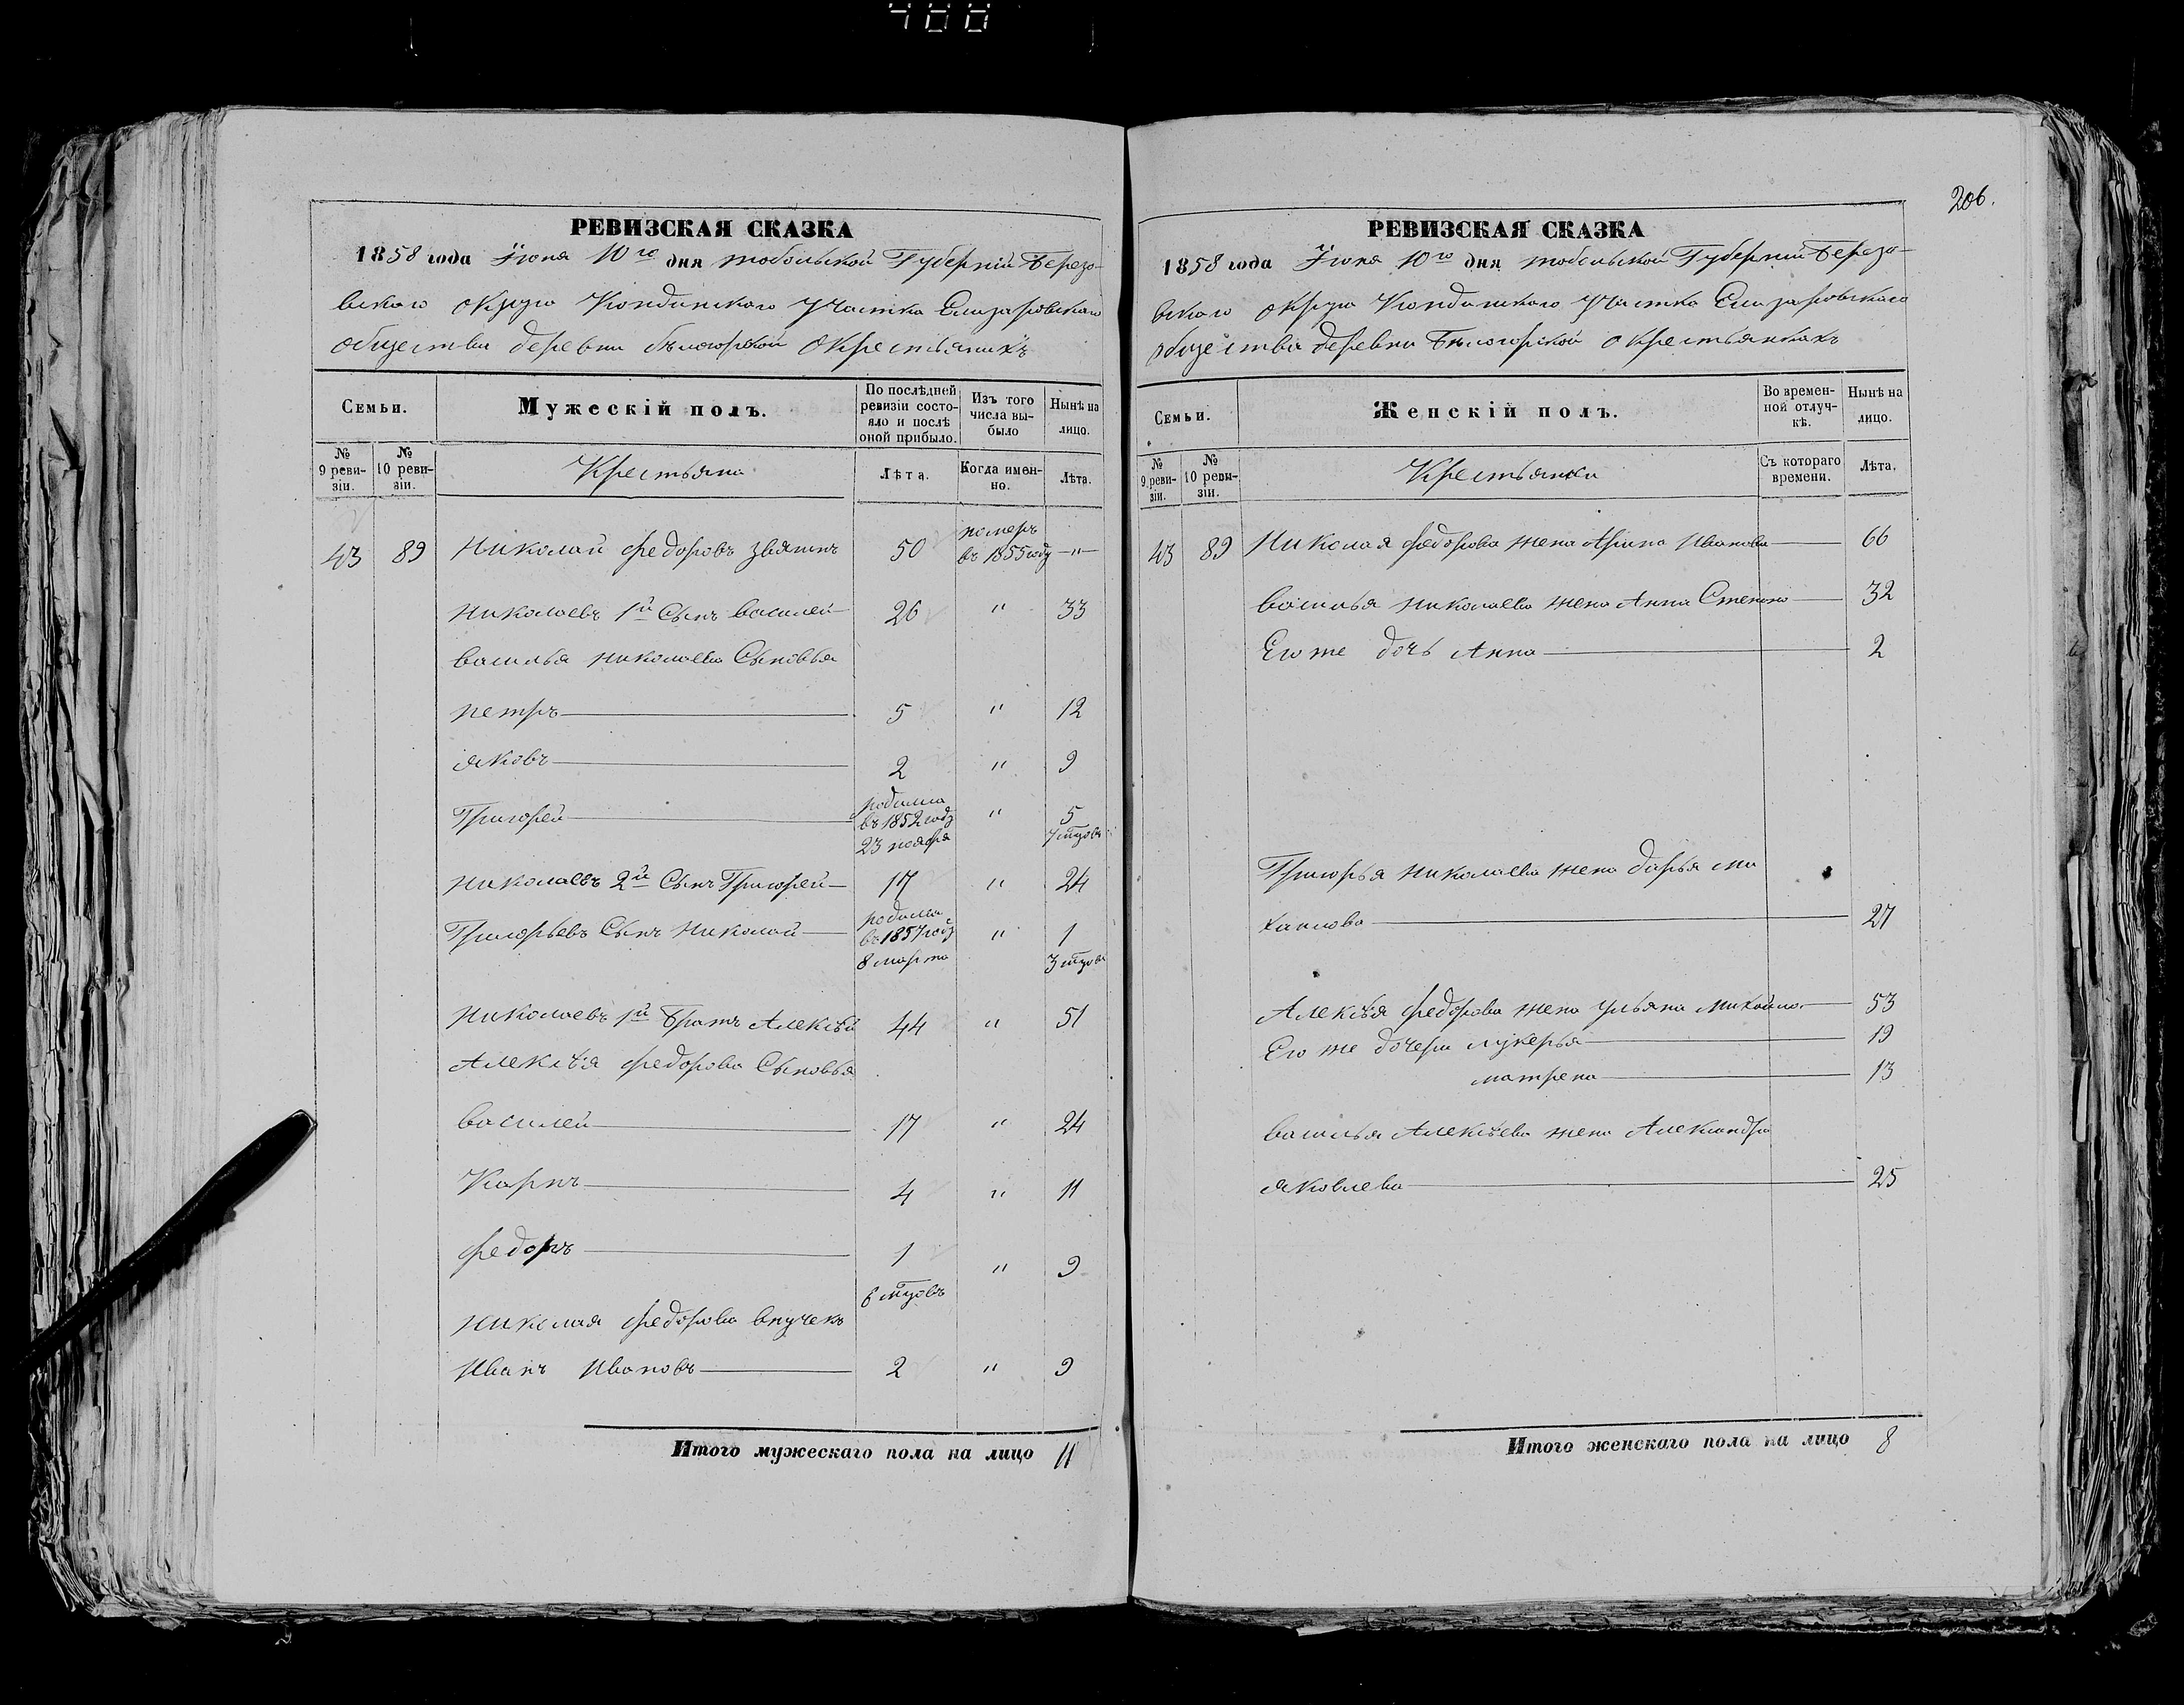 400
206.
РЕВИЗСКАЯ СКАЗКА
1858 года Іюня 10го дня тобольской Губерніи Березо-
вскаго округа Кондинскаго Участка Елизаровскаго
общества деревни бѣлогорской о Крестьянихъ
Семьи.
Мужескій полъ.
По послѣдней ревизіи состояло и послѣ оной прибыло.
Изъ того числа выбыло
Нынѣ на лицо.
№ 9 ревизіи.
№ 10 ревизіи.
Крестьяна
Лѣта.
Когда именно.
Лѣта.
43 89 Николай федоровъ 50 померъ въ 1855 году —"—
николаевъ 1й Сынъ василей 26 " 33
василья николаева Сыновья
петръ 5 " 12
яковъ 2 " 9
Григорей родился въ 1852 году 23 ноября " 5 7 мцовъ
николаевъ 2й Сынъ Григорей 17 " 24
Григорьевъ Сынъ николай родился въ 1857 году 8 марта " 1 3 мцовъ
николаевъ 1й братъ Алексѣй 44 " 51
Алексѣя федорова Сыновья
василей 17 " 24
Карпъ 4 " 11
федоръ 1 6 мцовъ " 9
николая федорова внучекъ
Иванъ Ивановъ 2 " 9
Итого мужескаго пола на лицо 11
РЕВИЗСКАЯ СКАЗКА
1858 года Іюня 10го дня тобольской Губерніи Березо-
вскаго округа Кондинскаго участка Елизаровскаго
общества деревни Бѣлогорской о крестьянкахъ
Семьи.
Женскій полъ.
Во временной отлучкѣ.
Нынѣ на лицо.
№ 9 ревизіи.
№ 10 ревизіи.
Крестьянки
Съ котораго времени.
Лѣта.
43 89 Николая федорова жена Арина Иванова 66
василья николаева жена Анна Степано 32
Его же дочь Анна 2
Григорья николаева жена дарья ми
хаилова 27
Алексѣя федорова жена ульяна михайло. 53
Его же дочери лукерья 19
матрена 13
василья Алексѣева жена Александра
яковлева 25
Итого женскаго пола на лицо 8